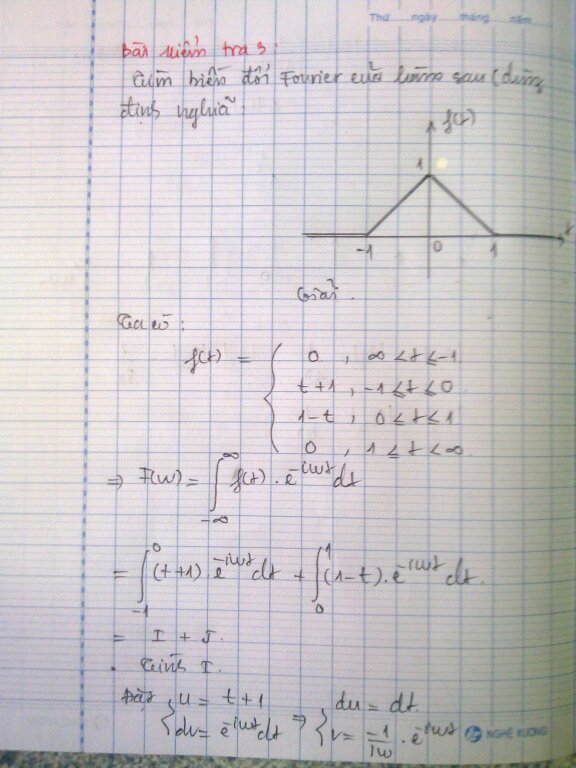 Thứ ngày tháng năm
Bài kiểm tra 3:
Tìm biến đổi Fourier của hàm sau (dùng
định nghĩa):
f(t)
1
-1 0 1 t
Giải.
Ta có:
f(t) = { 0 , ∞ < t ≤ -1
t+1 , -1 ≤ t ≤ 0
1-t , 0 ≤ t ≤ 1
0 , 1 ≤ t < ∞
⇒ F(w) = ∫_{-∞}^{∞} f(t) . e^{-iwt} dt
= ∫_{-1}^{0} (t+1) . e^{-iwt} dt + ∫_{0}^{1} (1-t) . e^{-iwt} dt.
= I + J.
. Tính I.
Đặt { u = t+1 ⇒ { du = dt.
dv = e^{-iwt} dt v = \frac{-1}{iw} . e^{-iwt}
NGHỆ XƯƠNG